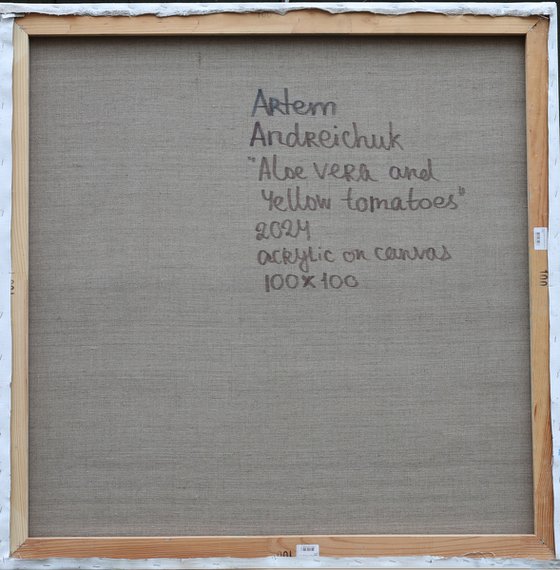 Artem
Andreichuk
"Aloe vera and
Yellow tomatoes"
2024
acrylic on canvas
100x100
100